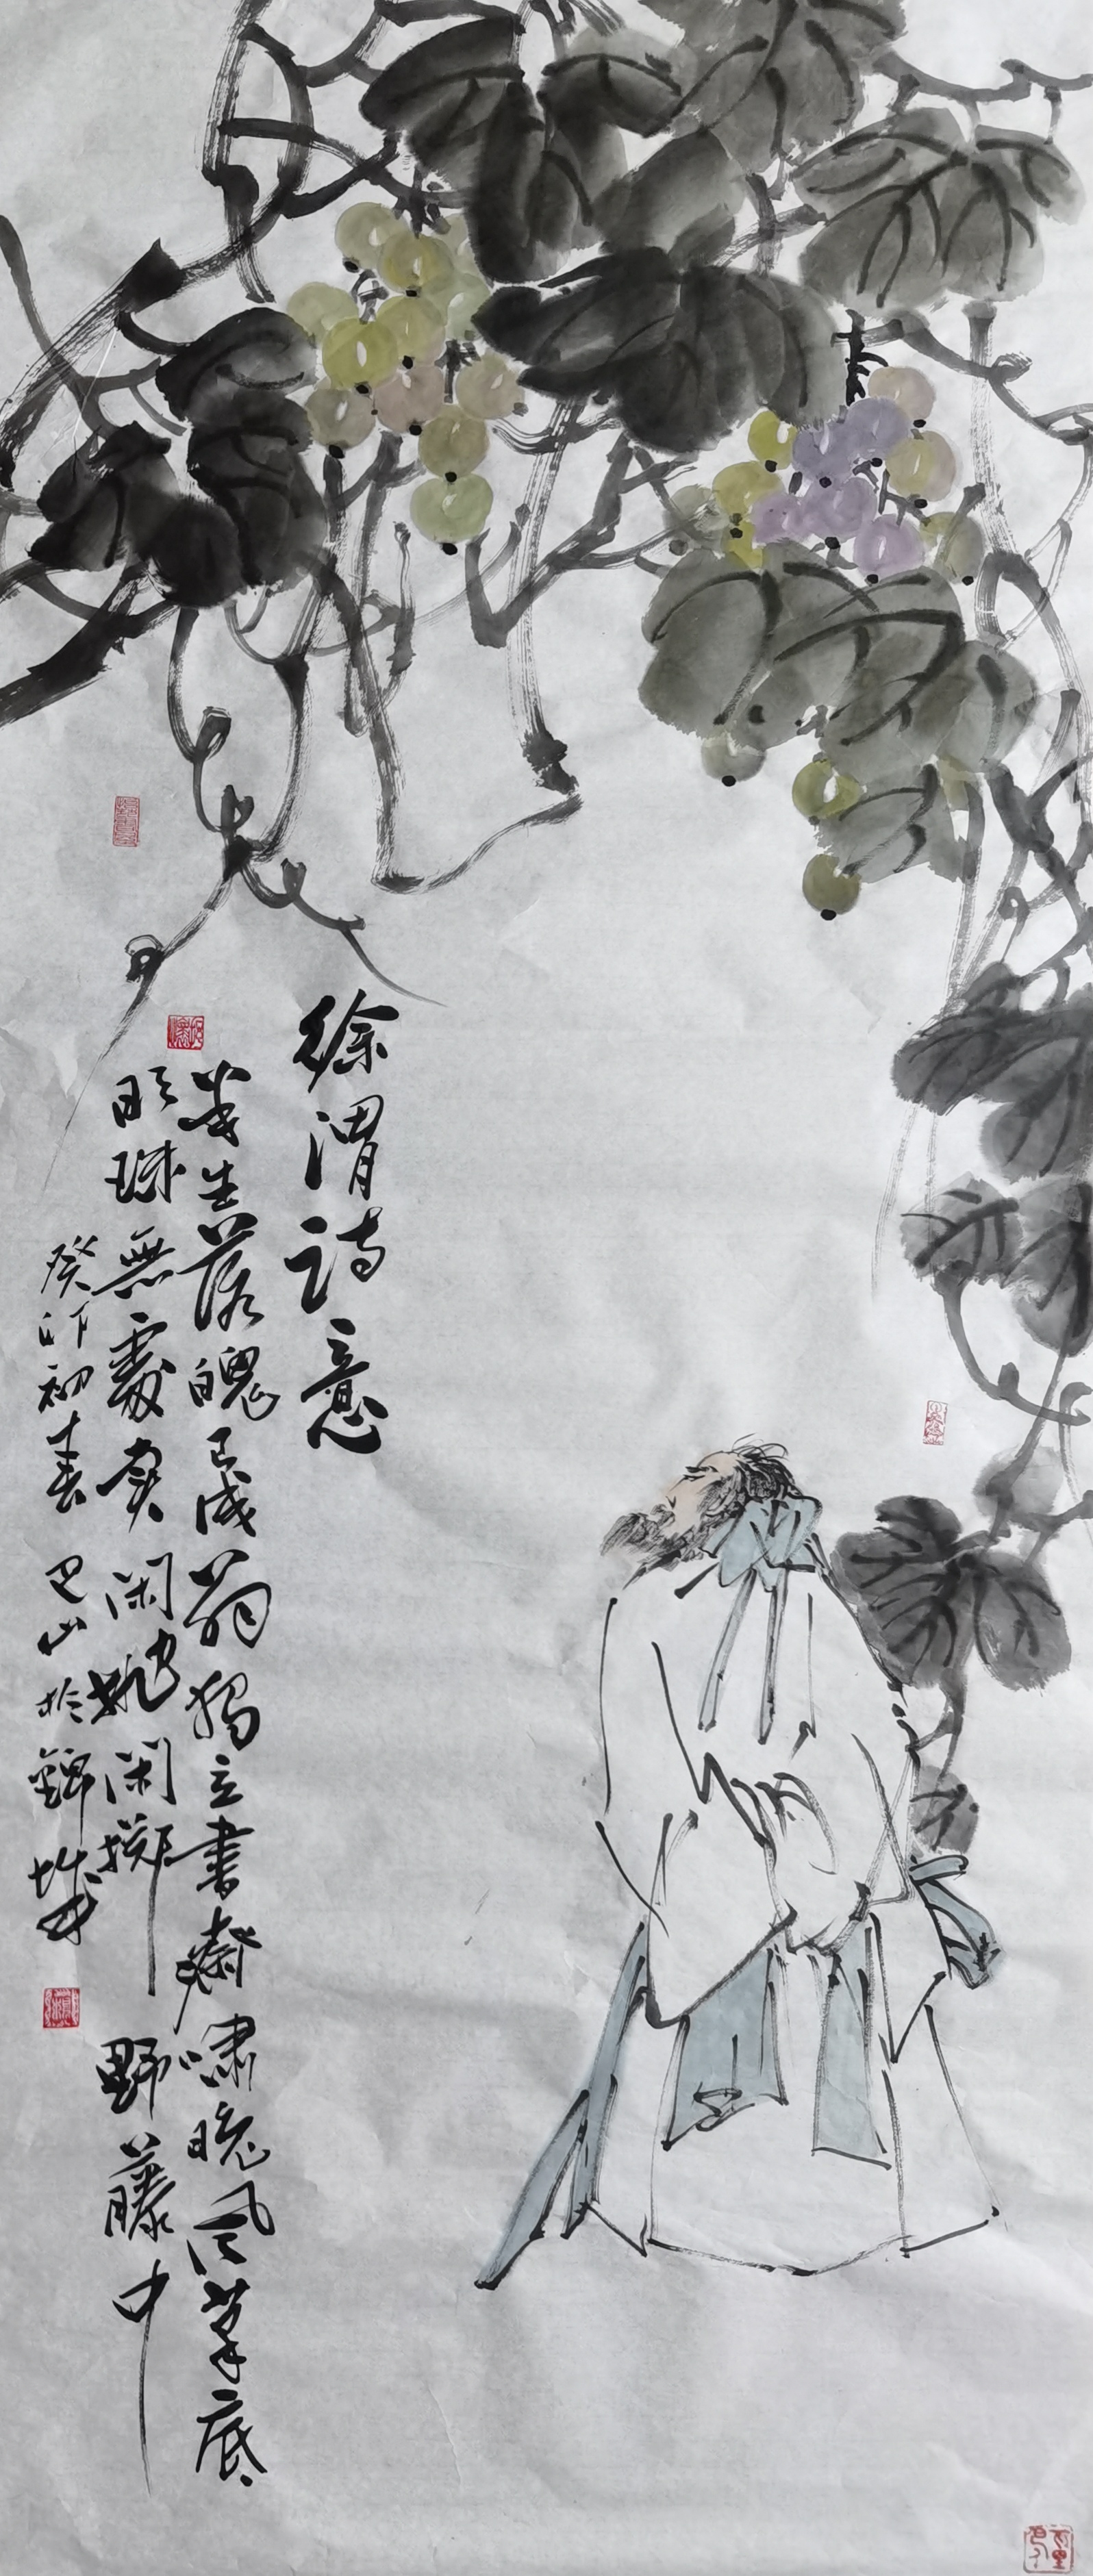 徐渭诗意
半生落魄已成翁独立書齋啸晚风笔底
明珠無處卖闲抛闲掷野藤中
癸卯初春巴山於錦城